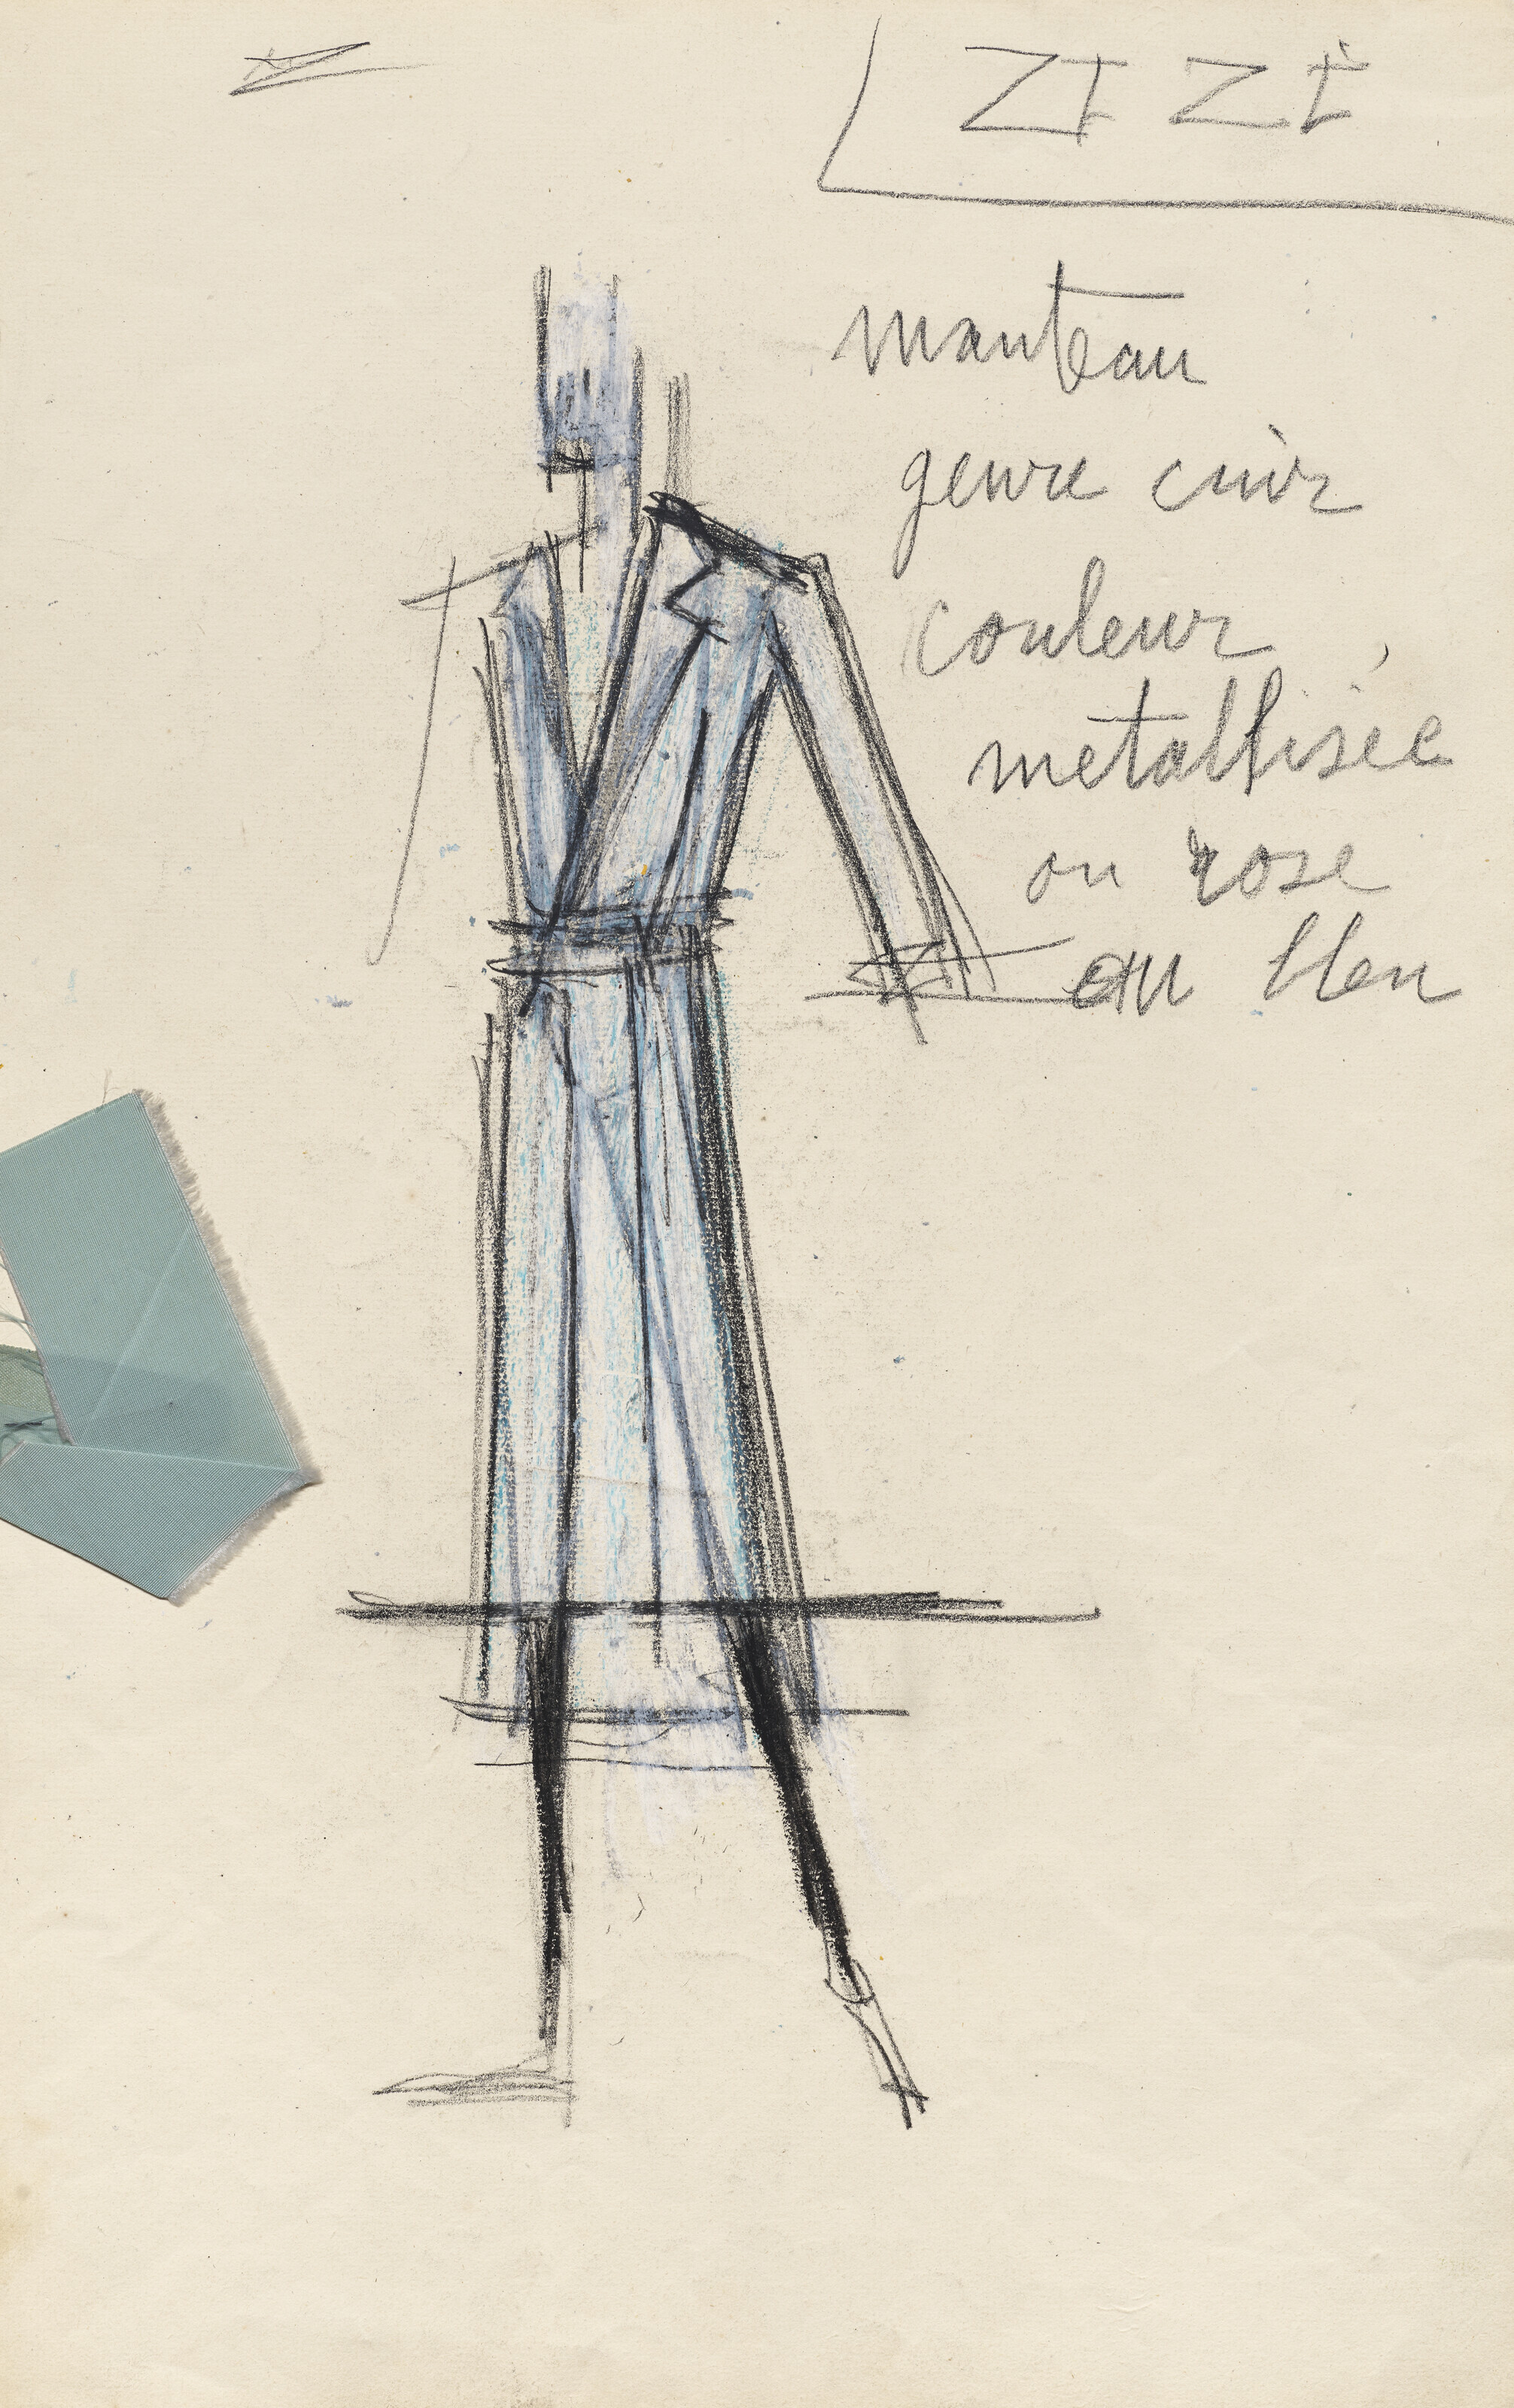 ZIZI
manteau
genre cuir
couleur
metallisée
ou rose
ou bleu